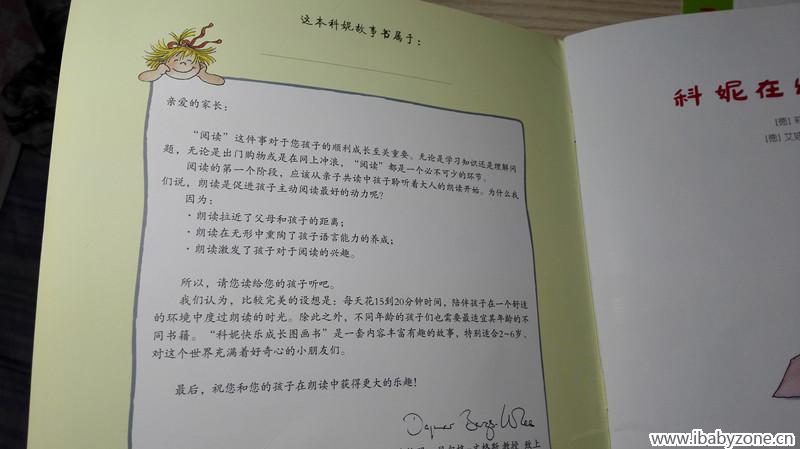 这本科妮故事书属于：
亲爱的家长：
“阅读”这件事对于您孩子的顺利成长至关重要。无论是学习知识还是理解问
题，无论是出门购物或是在网上冲浪，“阅读”都是一个必不可少的环节。
阅读的第一个阶段，应该从亲子共读中孩子聆听着大人的朗读开始。为什么我
们说，朗读是促进孩子主动阅读最好的动力呢？
因为：
·朗读拉近了父母和孩子的距离；
·朗读在无形中熏陶了孩子语言能力的养成；
·朗读激发了孩子对于阅读的兴趣。
所以，请您读给您的孩子听吧。
我们认为，比较完美的设想是：每天花15到20分钟时间，陪伴孩子在一个舒适
的环境中度过朗读的时光。除此之外，不同年龄的孩子们也需要最适宜其年龄的不
同书籍。“科妮快乐成长图画书”是一套内容丰富有趣的故事，特别适合2~6岁、
对这个世界充满着好奇心的小朋友们。
最后，祝您和您的孩子在朗读中获得更大的乐趣！
教授 致上
科妮在
[德]
[德] 艾
www.ibabyzone.cn